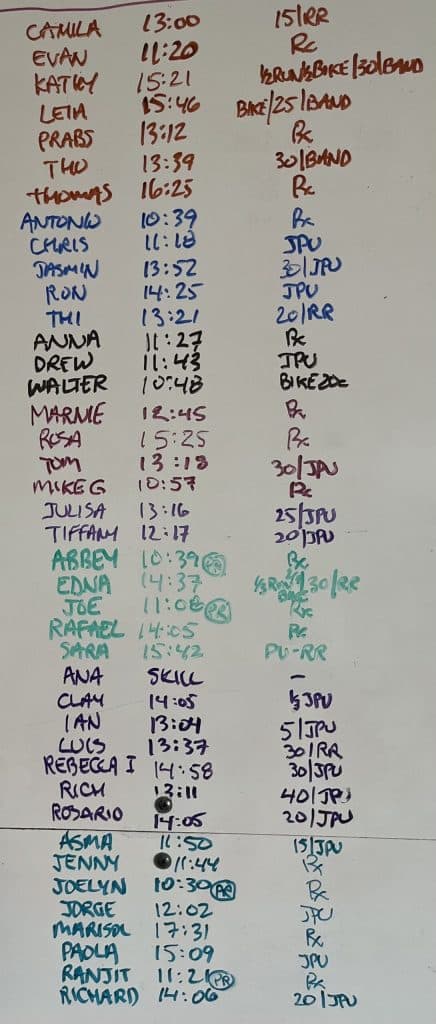 CAMILA 13:00 15/RR
EVAN 11:20 Rx
KATHY 15:21 ½RUN/½BIKE/30/BAND
LETIA 15:46 BIKE/25/BAND
PRABS 13:12 Rx
THU 13:39 30/BAND
THOMAS 16:25 Rx
ANTONIO 10:39 Rx
CHRIS 11:18 JPU
JASMIN 13:52 30/JPU
RON 14:25 JPU
THI 13:21 20/RR
ANNA 11:27 Rx
DREW 11:43 JPU
WALTER 10:48 BIKE
MARNIE 12:45 Rx
ROSA 15:25 Rx
TOM 13:18 30/JPU
MIKE G 10:57 Rx
JULISA 13:16 25/JPU
TIFFANY 12:17 20/JPU
ABBEY 10:39 PR Rx
EDNA 14:37 RUN BIKE /30/RR
JOE 11:08 PR Rx
RAFAEL 14:05 Rx
SARA 15:42 PU-RR
ANA SKILL –
CLAY 14:05 JPU
IAN 13:04 5/JPU
LUIS 13:37 30/RR
REBECCA I 14:58 30/JPU
RICH 13:11 40/JPU
ROSARIO 14:05 20/JPU
ASMA 11:50 15/JPU
JENNY 11:44 Rx
JOELYN 10:30 PR Rx
JORGE 12:02 JPU
MARISOL 17:31 Rx
PAOLA 15:09 JPU
RANJIT 11:21 PR Rx
RICHARD 14:06 20/JPU